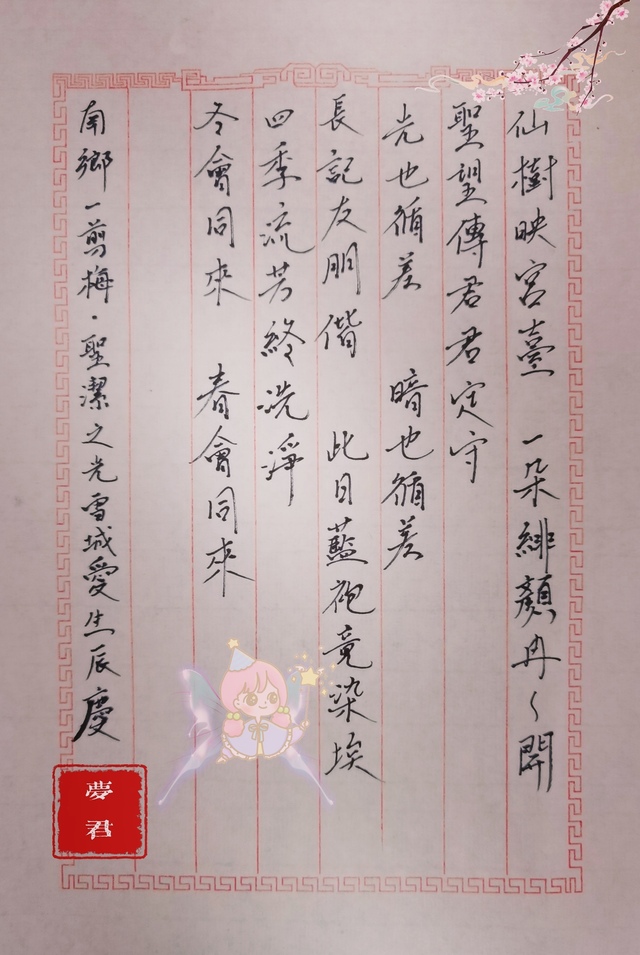 仙樹映宮臺 一朵緋顏冉〻開
聖望傳君君定守
光也循差 暗也循差
長記友朋偕 此日藍袍竟染埃
四季流芳終洗淨
冬會同來 春會同來
南鄉一剪梅·聖潔之光雪城愛生辰慶
夢君